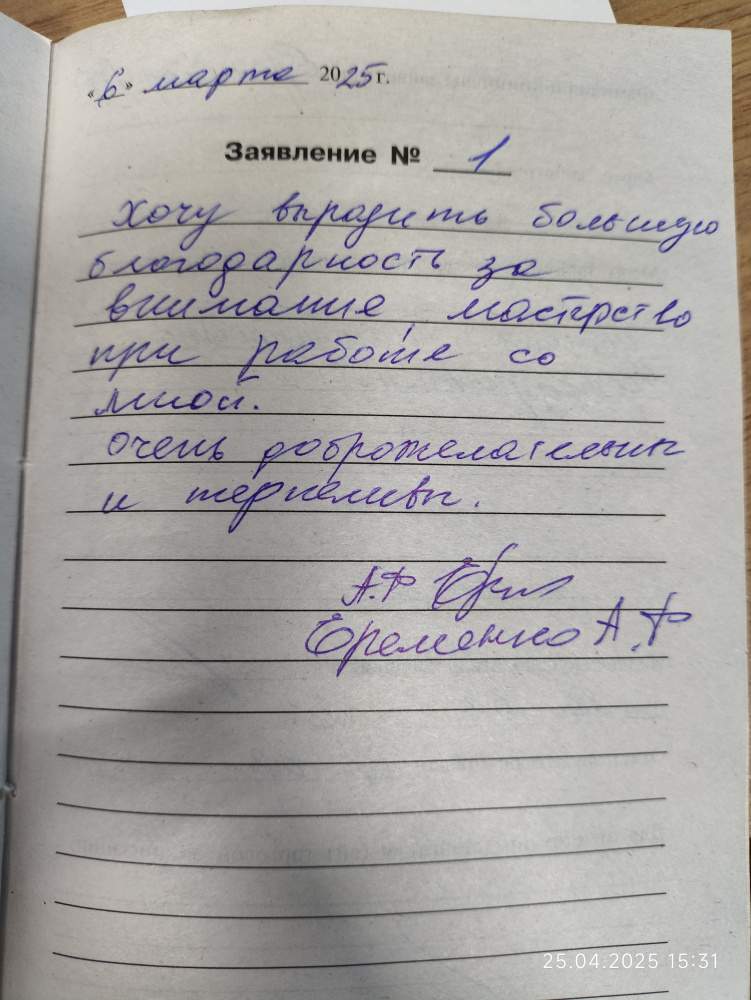 «6» марта 2025г.
Заявление № 1
хочу выразить большую
благодарность за
внимание, мастерство
при работе со
мной.
очень доброжелательны
и терпеливы.
А.Ф
Еременко А.Ф
25.04.2025 15:31